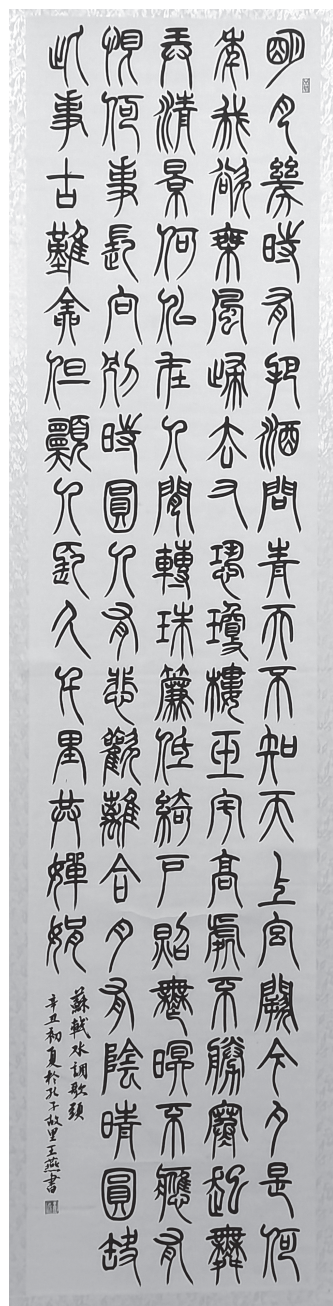 明月幾時有把酒問青天不知天上宮闕今夕是何
年我欲乘風歸去又恐瓊樓玉宇高處不勝寒起舞
弄清景何似在人間轉珠簾低綺戶照無眠不應有
恨何事長向別時圓人有悲歡離合月有陰晴圓缺
此事古難全但願人長久千里共嬋娟
蘇軾水調歌頭
辛丑初夏於孔子故里王燕書